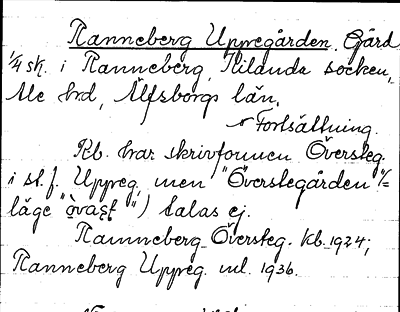 Ranneberg Uppregården, Gård,
1/4 sk. i Ranneberg, Kilanda socken,
Ale hrd, Älfsborgs län.
Fortsättning.
Kb. har skrivformen Översteg.
i st. f. Uppreg. men "Överstegården"
läge ") talas ej.
Ranneberg Översteg. Kb. 1924;
Ranneberg Uppreg. ml. 1936.